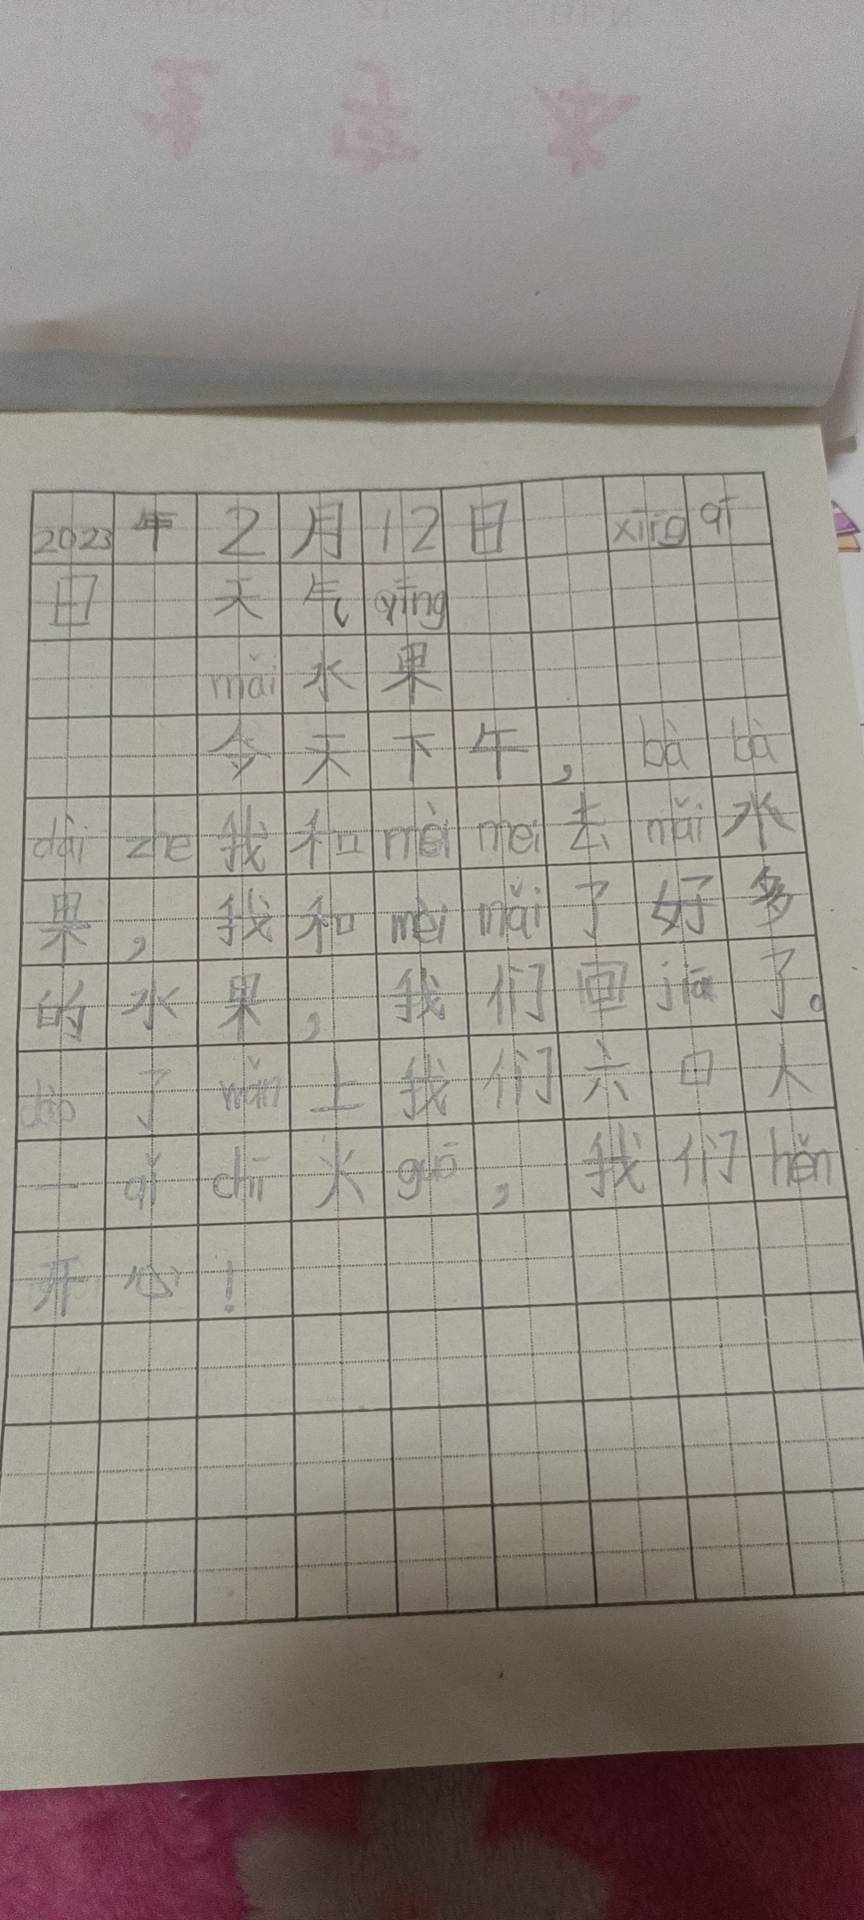 2023年2月12日 xīng qī
日 天气 qíng
mǎi 水果
今天下午，bà bà
dài zhe 我和 mèi mei 去 mǎi 水
果，我和 mèi mǎi 了好多
的水果，我们回 jiā 了。
dào 了 wǎn 上我们六口人
一 qǐ chī 火 guō，我们 hěn
开心！